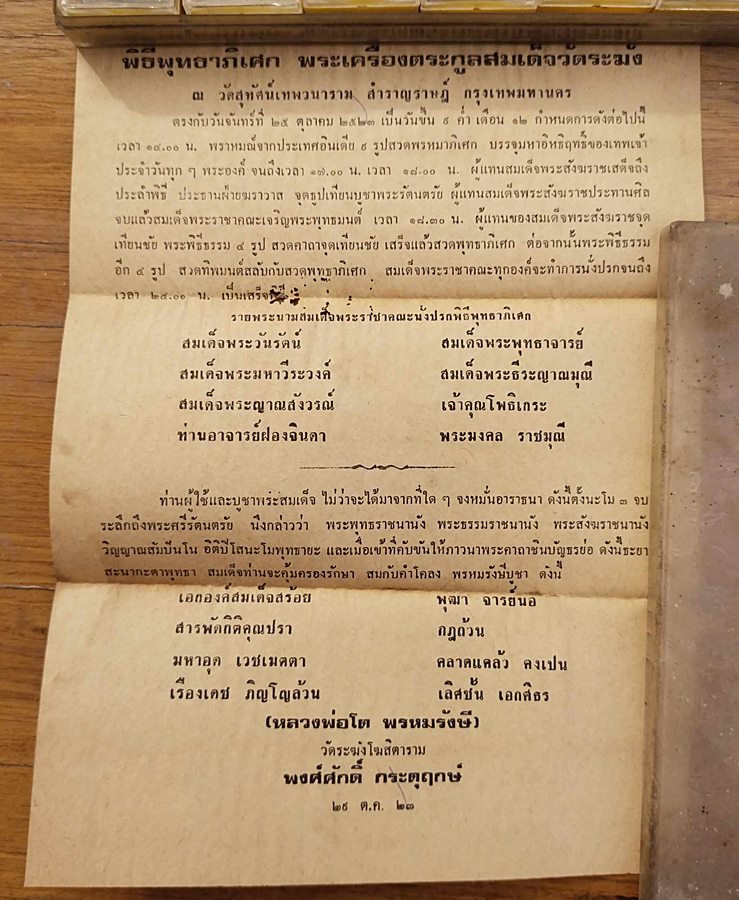 พิธีพุทธาภิเศก พระเครื่องตระกูลสมเด็จวัดระฆัง
ณ วัดสุทัศน์เทพวนาราม สำราญราษฎ์ กรุงเทพมหานคร
ตรงกับวันจันทร์ที่ ๒๕ ตุลาคม ๒๕๒๓ เป็นวันขึ้น ๙ ค่ำ เดือน ๑๒ กำหนดการดังต่อไปนี้
เวลา ๑๔.๐๐ น. พราหมณ์จากประเทศอินเดีย ๙ รูปสวดพรหมาภิเศก บรรจุมหาอิทธิฤทธิ์ของเทพเจ้า
ประจำวันทุก ๆ พระองค์ จนถึงเวลา ๑๗.๐๐ น. เวลา ๑๘.๐๐ น. ผู้แทนสมเด็จพระสังฆราชเสด็จถึง
ประลำพิธี ประธานฝ่ายฆราวาส จุดธูปเทียนบูชาพระรัตนตรัย ผู้แทนสมเด็จพระสังฆราชประทานศิล
จบแล้วสมเด็จพระราชาคณะเจริญพระพุทธมนต์ เวลา ๑๘.๓๐ น. ผู้แทนของสมเด็จพระสังฆราชจุด
เทียนชัย พระพิธีธรรม ๔ รูป สวดคาถาจุดเทียนชัย เสร็จแล้วสวดพุทธาภิเศก ต่อจากนั้นพระพิธีธรรม
อีก ๔ รูป สวดทิพมนต์สลับกับสวดพุทธาภิเศก สมเด็จพระราชาคณะทุกองค์จะทำการนั่งปรกจนถึง
เวลา ๒๔.๐๐ น. เป็นเสร็จพิธี
รายพระนามสมเด็จพระราชาคณะนั่งปรกพิธีพุทธาภิเศก
สมเด็จพระวันรัตน์ สมเด็จพระพุทธาจารย์
สมเด็จพระมหาวีระวงค์ สมเด็จพระธีระญาณมุณี
สมเด็จพระญาณสังวรณ์ เจ้าคุณโพธิเกระ
ท่านอาจารย์ฝองจินดา พระมงคล ราชมุณี
ท่านผู้ใช้และบูชาพระสมเด็จ ไม่ว่าจะได้มาจากที่ใด ๆ จงหมั่นอาราธนา ดังนี้ตั้งนะโม ๓ จบ
ระลึกถึงพระศรีรัตนตรัย นึงกล่าวว่า พระพุทธราชนานัง พระธรรมราชนานัง พระสังฆราชนานัง
วิญญาณสัมปันโน อิติปิโสนะโมพุทธายะ และเมื่อเข้าที่คับขันให้ภาวนาพระคาถาชินบัญธรย่อ ดังนี้ธะยา
สะนากะตาพุทธา สมเด็จท่านจะคุ้มครองรักษา สมกับคำโคลง พรหมรังษีบูชา ดังนี้
เอกองค์สมเด็จสร้อย พุฒา จารย์นอ
สารพัดกิติคุณปรา กฎถ้วน
มหาอุด เวชเมตตา คลาดแคล้ว คงเปน
เรืองเดช ภิญโญล้วน เลิศชั้น เอกศิธร
(หลวงพ่อโต พรหมรังษี)
วัดระฆังโฆสิตาราม
พงศ์ศักดิ์ กระตุฤกษ์
๒๙ ต.ค. ๒๓